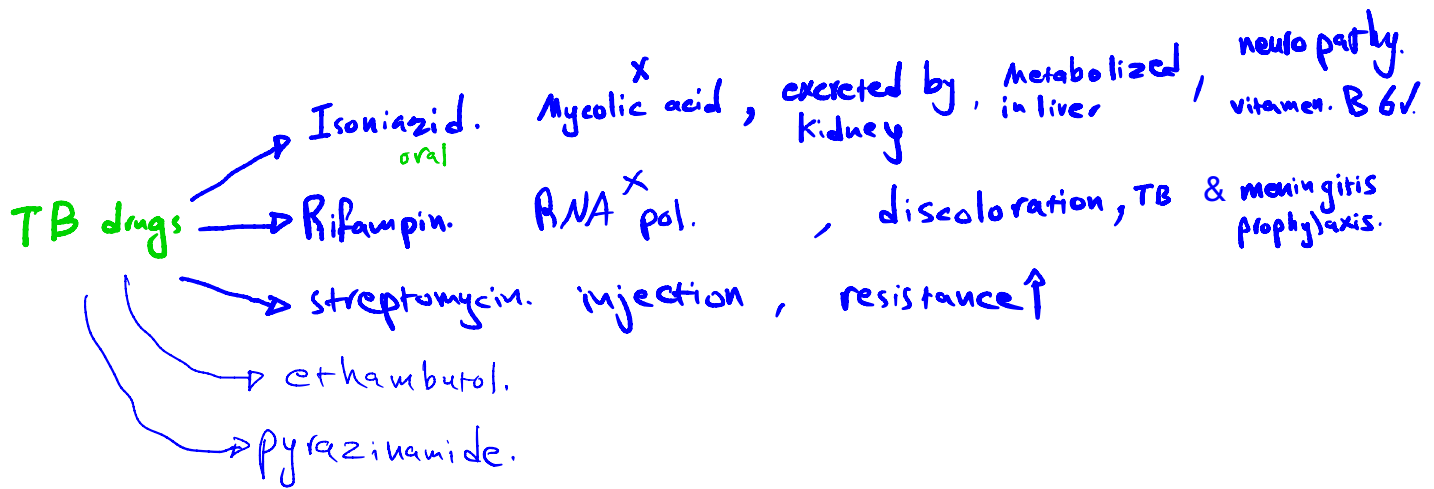 Isoniazid. Mycolic acid, excreted by kidney, Metabolized in liver, neuropathy. vitamen. B 6✓.
oral
TB drugs
Rifampin. RNA pol. , discoloration, TB & meningitis prophylaxis.
streptomycin. injection, resistance↑
ethambutol.
pyrazinamide.